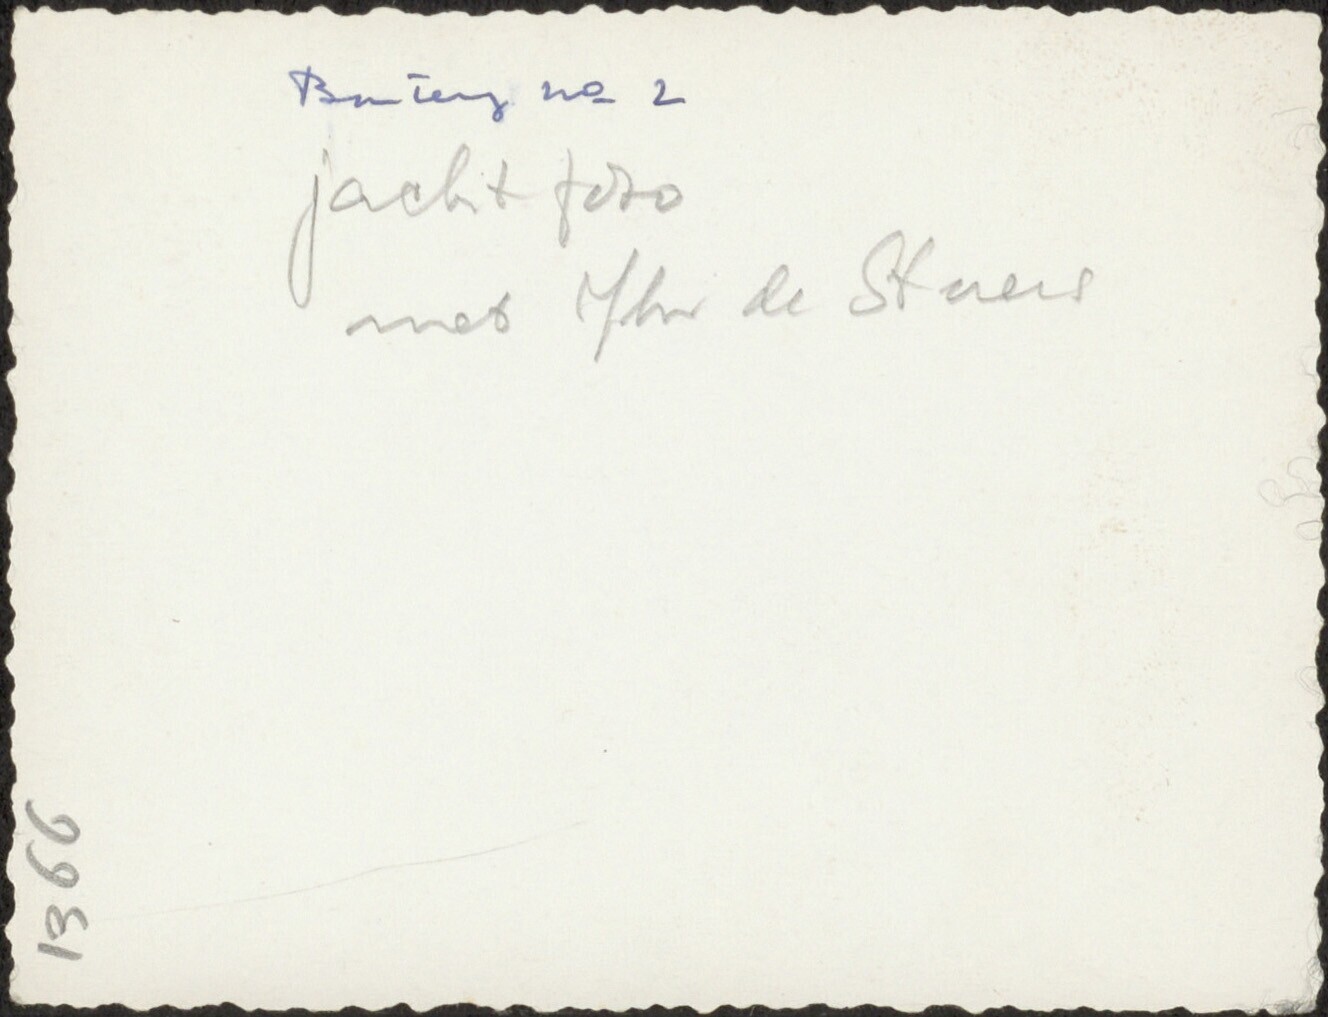 Banteng no 2
jacht foto
met Jhr de Stuers
1366